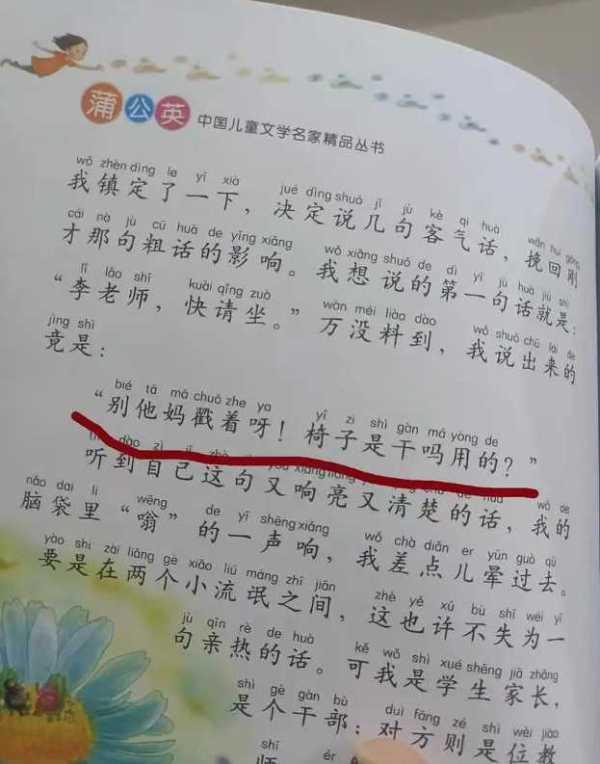 蒲公英 中国儿童文学名家精品丛书
wǒ zhèn dìng le yī xià jué dìng shuō jǐ jù kè qi huà wǎn huí gāng
我镇定了一下，决定说几句客气话，挽回刚
cái nà jù cū huà de yǐng xiǎng wǒ xiǎng shuō de dì yī jù huà jiù shì
才那句粗话的影响。我想说的第一句话就是：
lǐ lǎo shī kuài qǐng zuò wàn méi liào dào wǒ shuō chū lái de
“李老师，快请坐。”万没料到，我说出来的
jìng shì
竟是：
bié tā mā chuō zhe ya yǐ zi shì gàn má yòng de
“别他妈戳着呀！椅子是干吗用的？”
dào zì yòu xiǎng liàng de huà wǒ de
听到自己这句又响亮又清楚的话，我的
nǎo dai li wēng de yī shēng xiǎng wǒ chà diǎn er yūn guò qù
脑袋里“嗡”的一声响，我差点儿晕过去。
yào shi zài liǎng gè xiǎo liú máng zhī jiān zhè yě xǔ bù shī wéi yī
要是在两个小流氓之间，这也许不失为一
jù qīn rè de huà kě wǒ shì xué shēng jiā zhǎng
句亲热的话。可我是学生家长，
shì gè gàn bù duì fāng zé shì wèi jiào
是个干部；对方则是位教
shī
师